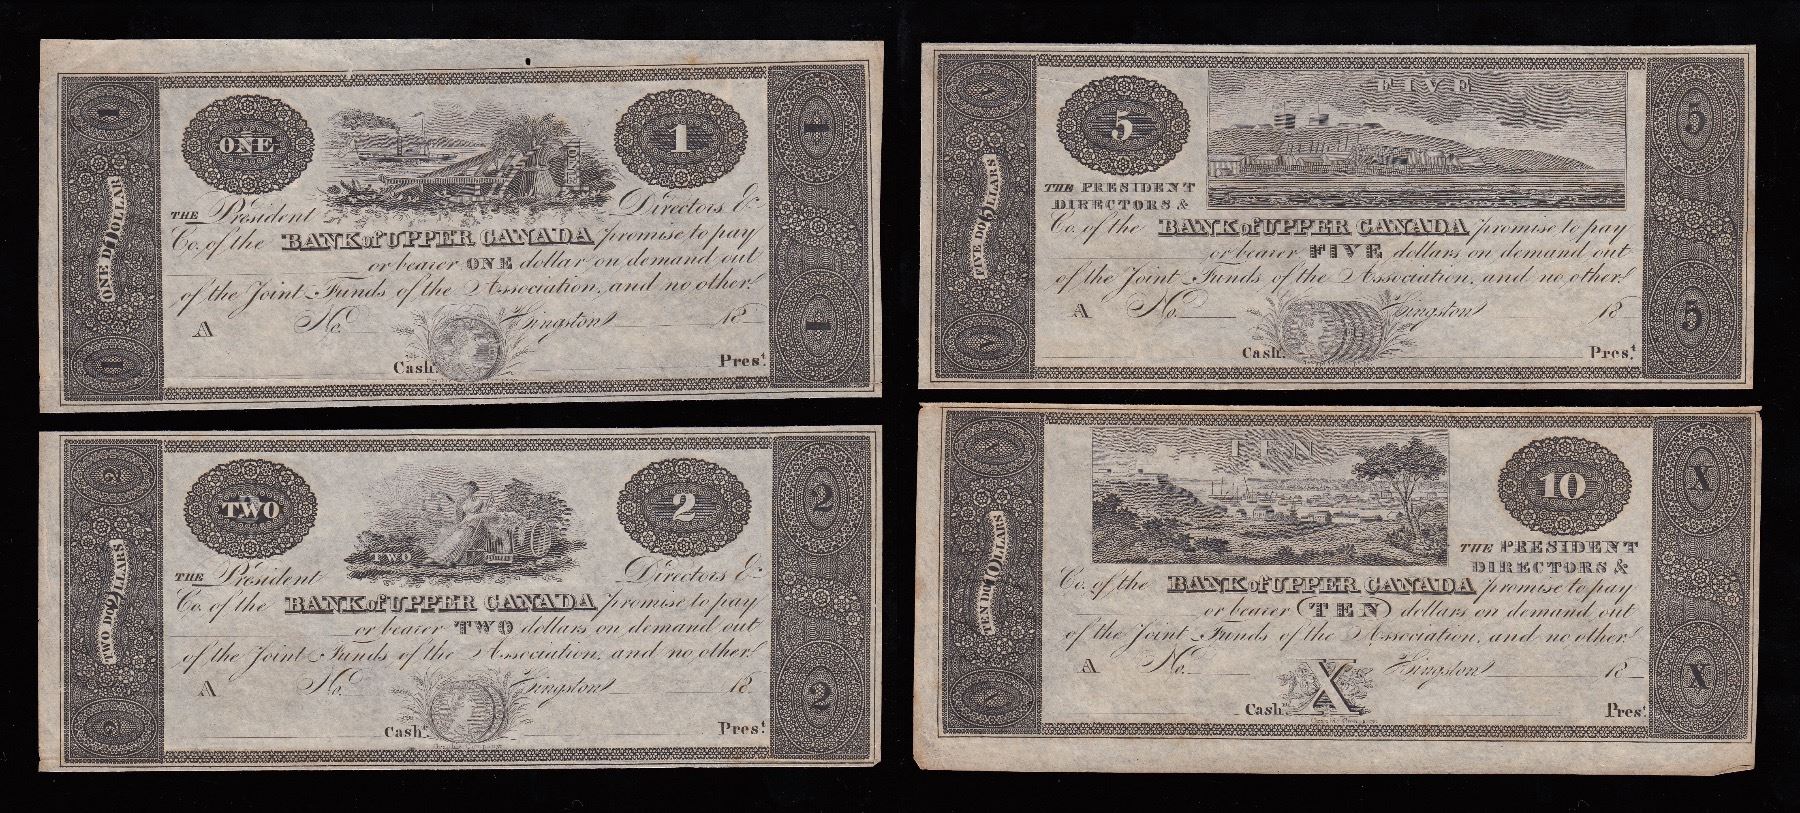 ONE
1
1
1
ONE D 1 OLLAR
1
1
1
THE President Directors &
Co. of the BANK of UPPER CANADA promise to pay
or bearer ONE dollar on demand out
of the Joint Funds of the Association, and no other.
A No. Kingston 18
Cashr. Prest.
TWO
2
2
2
TWO DO 2 LLARS
TWO
2
2
2
THE President Directors &
Co. of the BANK of UPPER CANADA promise to pay
or bearer TWO dollars on demand out
of the Joint Funds of the Association, and no other.
A No. Kingston 18
Cashr. Prest.
5
FIVE
5
FIVE DO 5 LLARS
5
THE PRESIDENT
DIRECTORS &
Co. of the BANK of UPPER CANADA promise to pay
or bearer FIVE dollars on demand out
of the Joint Funds of the Association, and no other.
A No. Kingston 18
Cashr. Prest.
TEN
10
X
TEN D 10 OLLARS
X
THE PRESIDENT
DIRECTORS &
Co. of the BANK of UPPER CANADA promise to pay
or bearer TEN dollars on demand out
of the Joint Funds of the Association, and no other.
A No. Kingston 18
X
Cashr. Prest.